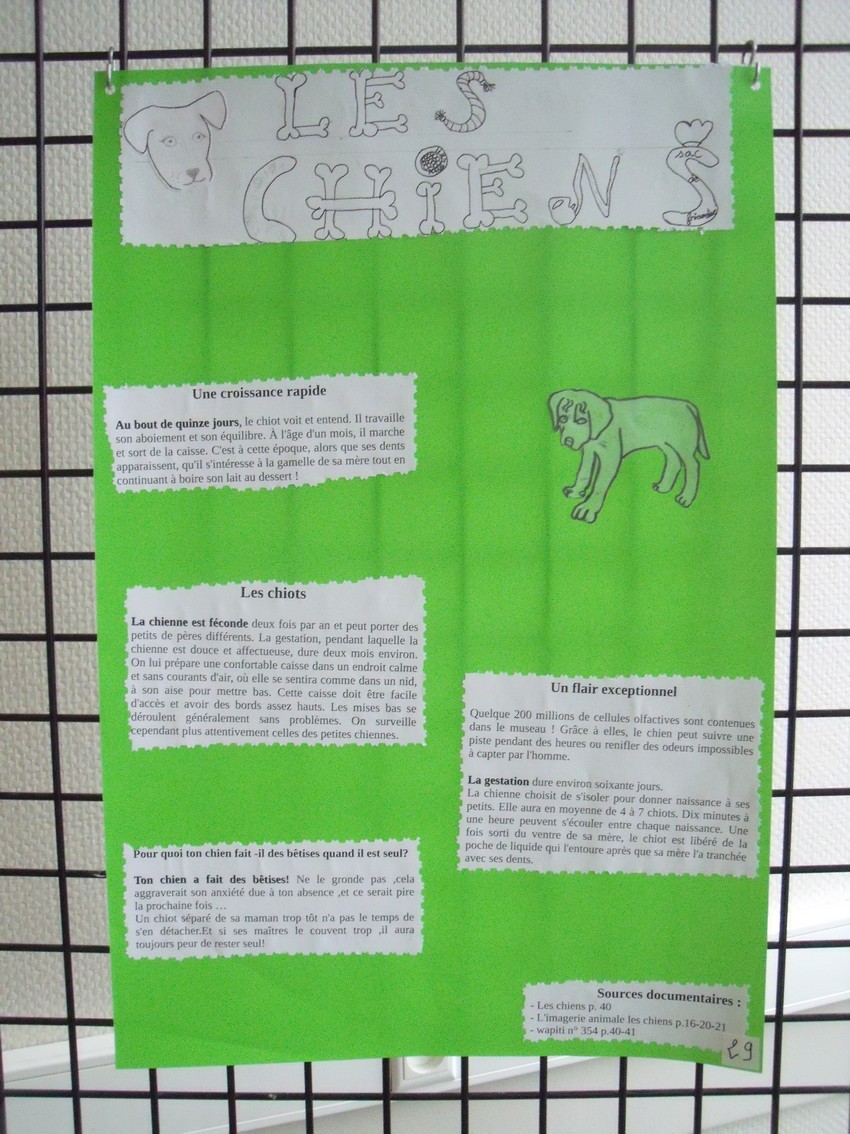 LES
CHiENS
sac
de
friandises
Une croissance rapide
Au bout de quinze jours, le chiot voit et entend. Il travaille
son aboiement et son équilibre. À l'âge d'un mois, il marche
et sort de la caisse. C'est à cette époque, alors que ses dents
apparaissent, qu'il s'intéresse à la gamelle de sa mère tout en
continuant à boire son lait au dessert !
Les chiots
La chienne est féconde deux fois par an et peut porter des
petits de pères différents. La gestation, pendant laquelle la
chienne est douce et affectueuse, dure deux mois environ.
On lui prépare une confortable caisse dans un endroit calme
et sans courants d'air, où elle se sentira comme dans un nid,
à son aise pour mettre bas. Cette caisse doit être facile
d'accès et avoir des bords assez hauts. Les mises bas se
déroulent généralement sans problèmes. On surveille
cependant plus attentivement celles des petites chiennes.
Un flair exceptionnel
Quelque 200 millions de cellules olfactives sont contenues
dans le museau ! Grâce à elles, le chien peut suivre une
piste pendant des heures ou renifler des odeurs impossibles
à capter par l'homme.
La gestation dure environ soixante jours.
La chienne choisit de s'isoler pour donner naissance à ses
petits. Elle aura en moyenne de 4 à 7 chiots. Dix minutes à
une heure peuvent s'écouler entre chaque naissance. Une
fois sorti du ventre de sa mère, le chiot est libéré de la
poche de liquide qui l'entoure après que sa mère l'a tranchée
avec ses dents.
Pour quoi ton chien fait -il des bêtises quand il est seul?
Ton chien a fait des bêtises! Ne le gronde pas ,cela
aggraverait son anxiété due à ton absence ,et ce serait pire
la prochaine fois …
Un chiot séparé de sa maman trop tôt n'a pas le temps de
s'en détacher.Et si ses maîtres le couvent trop ,il aura
toujours peur de rester seul!
Sources documentaires :
- Les chiens p. 40
- L'imagerie animale les chiens p.16-20-21
- wapiti n° 354 p.40-41
29